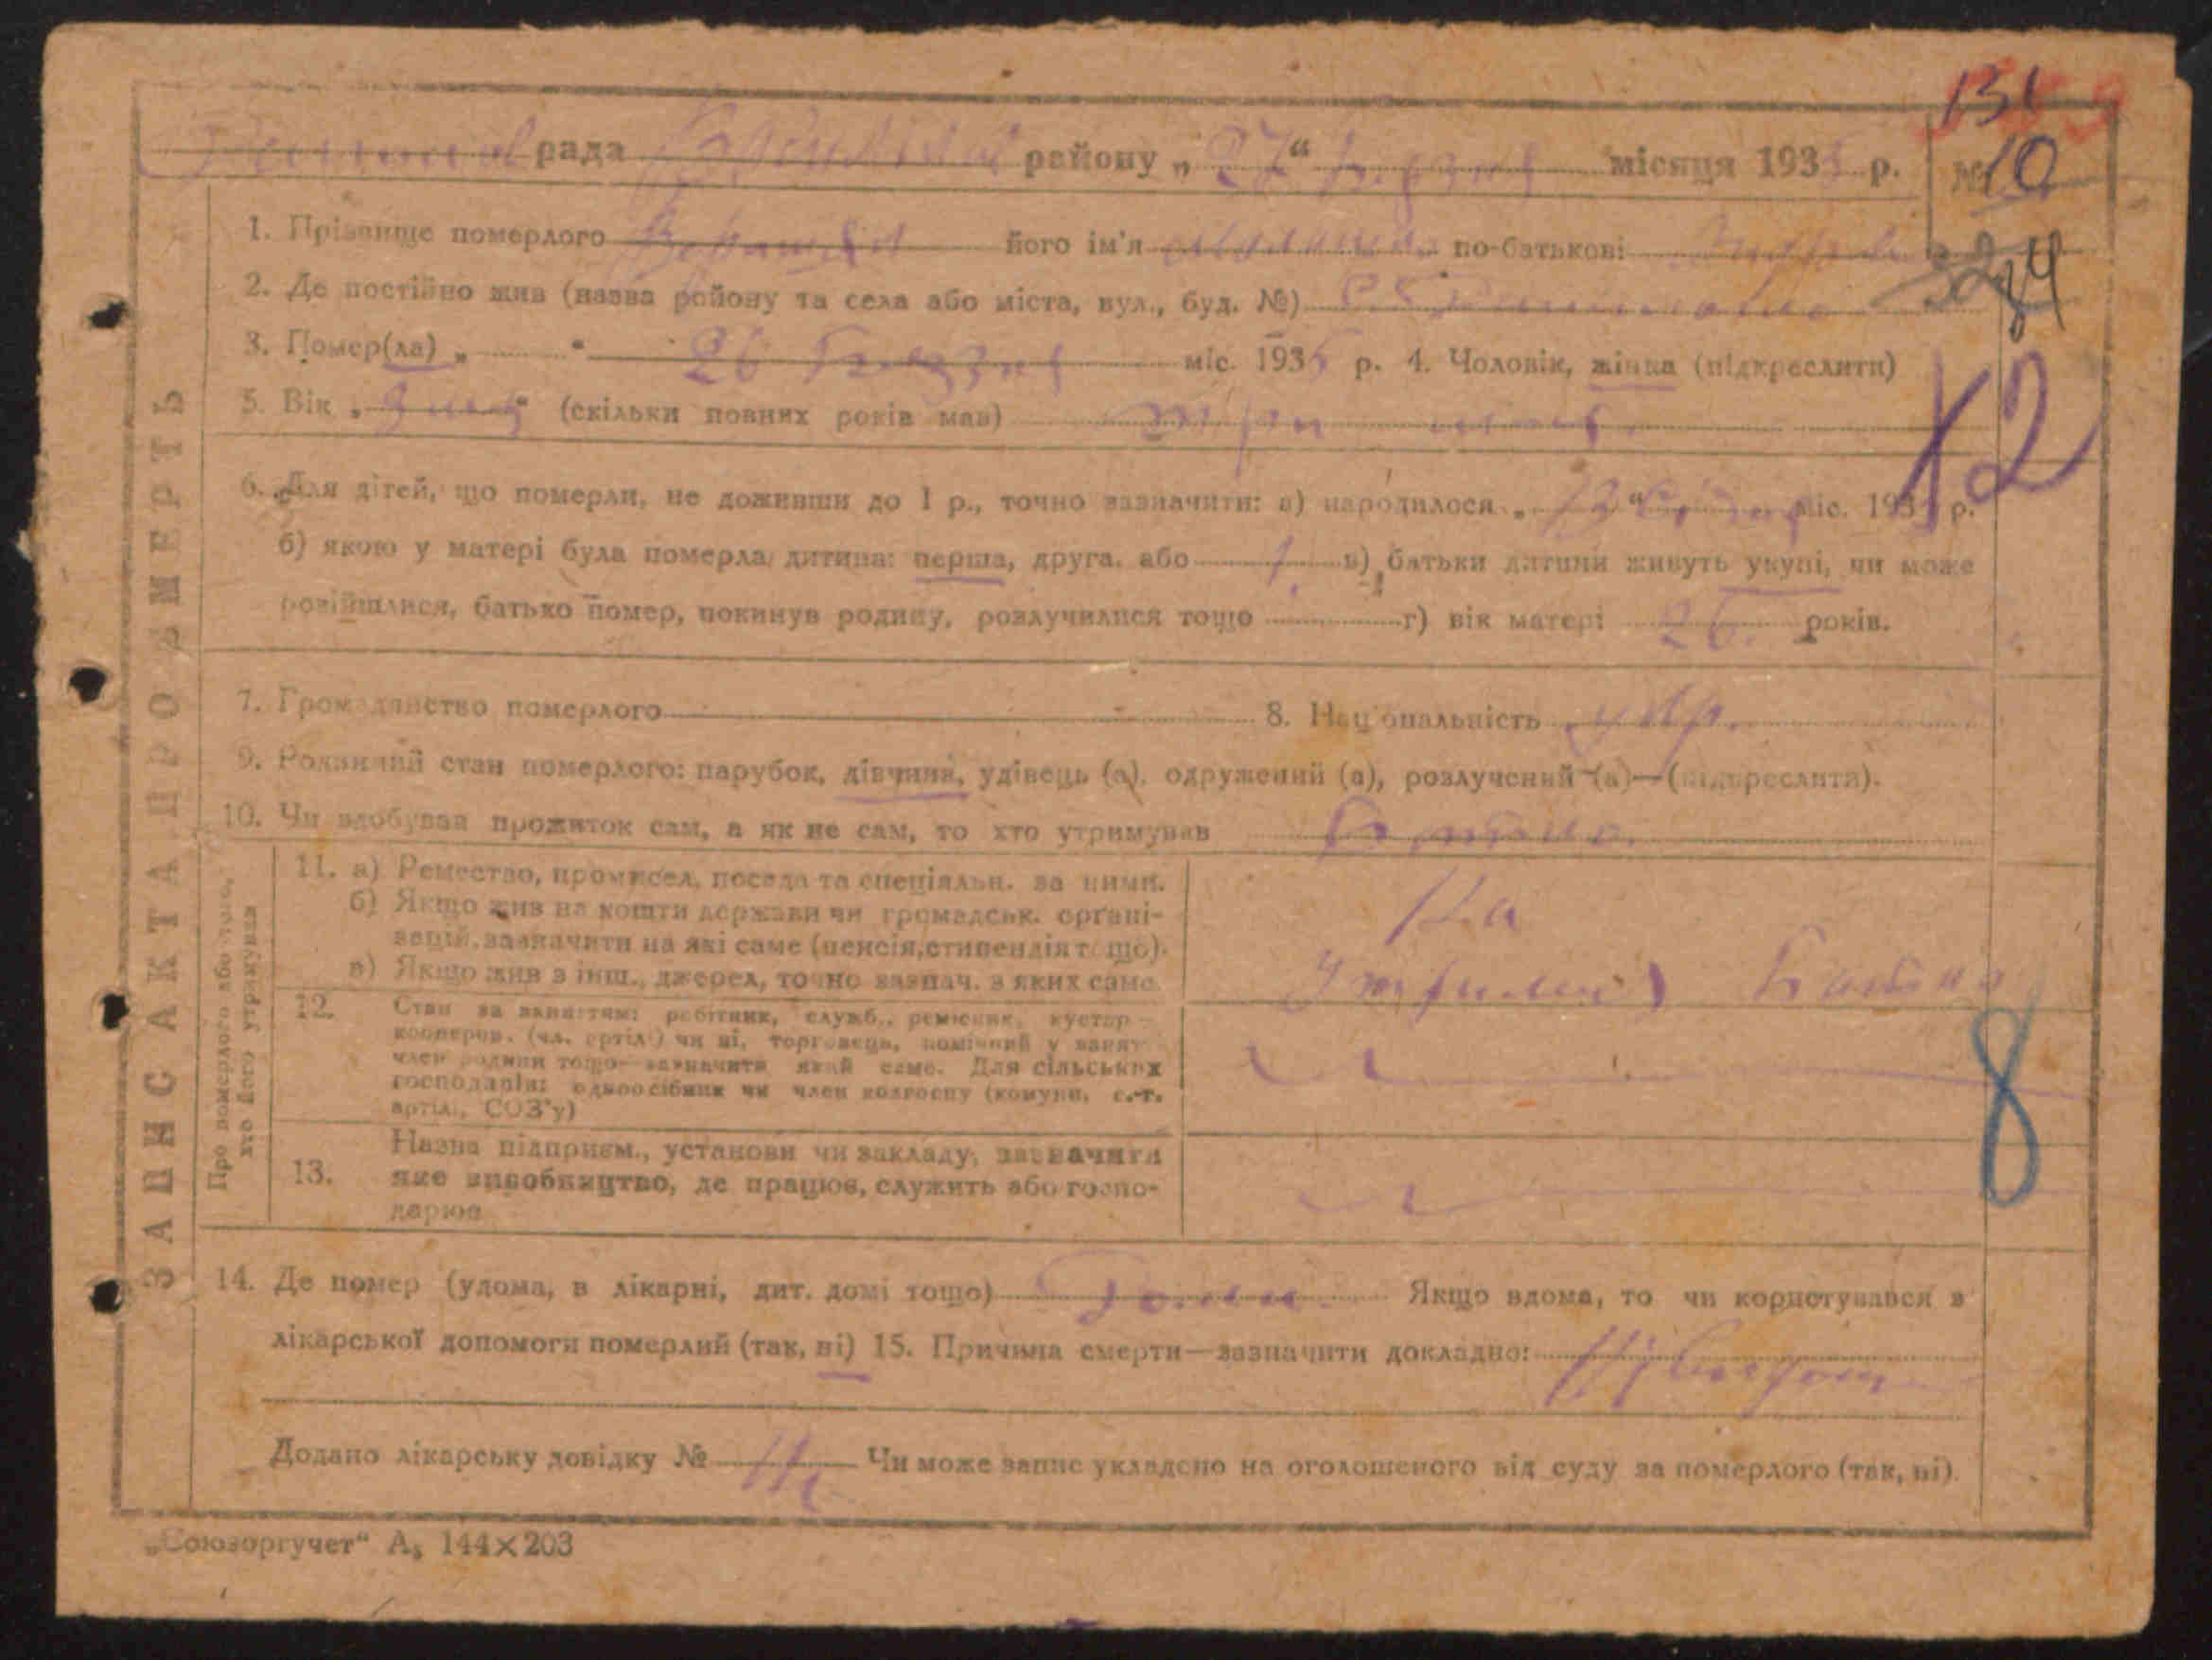 131
рада району „ 27 “ Березня місяця 193 р. № 10
1. Прізвище померлого його ім'я по-батькові
34
2. Де постійно жив (назва району та села або міста, вул., буд. №)
3. Помер(ла) „ “ 26 Березня міс. 193 р. 4. Чоловік, жінка (підкреслити)
12
5. Вік „ “ (скільки повних років мав) три
6. Для дітей, що померли, не доживши до 1 р., точно зазначити: а) народилося „ “ міс. 193 р.
б) якою у матері була померла дитина: перша, друга. або 1. в) батьки дитини живуть укупі, чи може
розійшлися, батько помер, покинув родину, розлучилися тощо г) вік матері 26. років.
7. Громадянство померлого 8. Національність укр.
9. Родинний стан померлого: парубок, дівчина, удівець (а), одружений (а), розлучений (а)—(підкреслити).
10. Чи здобував прожиток сам, а як не сам, то хто утримував Батько.
ЗАПИС АКТА ПРО СМЕРТЬ
Про померлого або того,
хто його утримував
11. а) Ремество, промисел, посада та спеціяльн. за ними.
б) Якщо жив на кошти держави чи громадськ. органі-
зацій, зазначити на які саме (пенсія, стипендія тощо).
в) Якщо жив з інш., джерел, точно зазнач. з яких саме.
На
Утриманні Батька
12. Стан за заняттям: робітник, служб., ремісник, кустар—
кооперов. (чл. артілі) чи ні, торговець, помічний у занят.
член родини тощо—зазначити який саме. Для сільських
господарів: одноосібник чи член колгоспу (комуни, с.-г.
артілі, СОЗ'у)
8
13. Назва підприєм., установи чи закладу, зазначити
яке виробництво, де працює, служить або госпо-
дарює
14. Де помер (удома, в лікарні, дит. домі тощо) Дома. Якщо вдома, то чи користувався з
лікарської допомоги померлий (так, ні) 15. Причина смерти—зазначити докладно:
Додано лікарську довідку № Чи може запис укладено на оголошеного від суду за померлого (так, ні).
„Союзоргучет“ А₅ 144×203